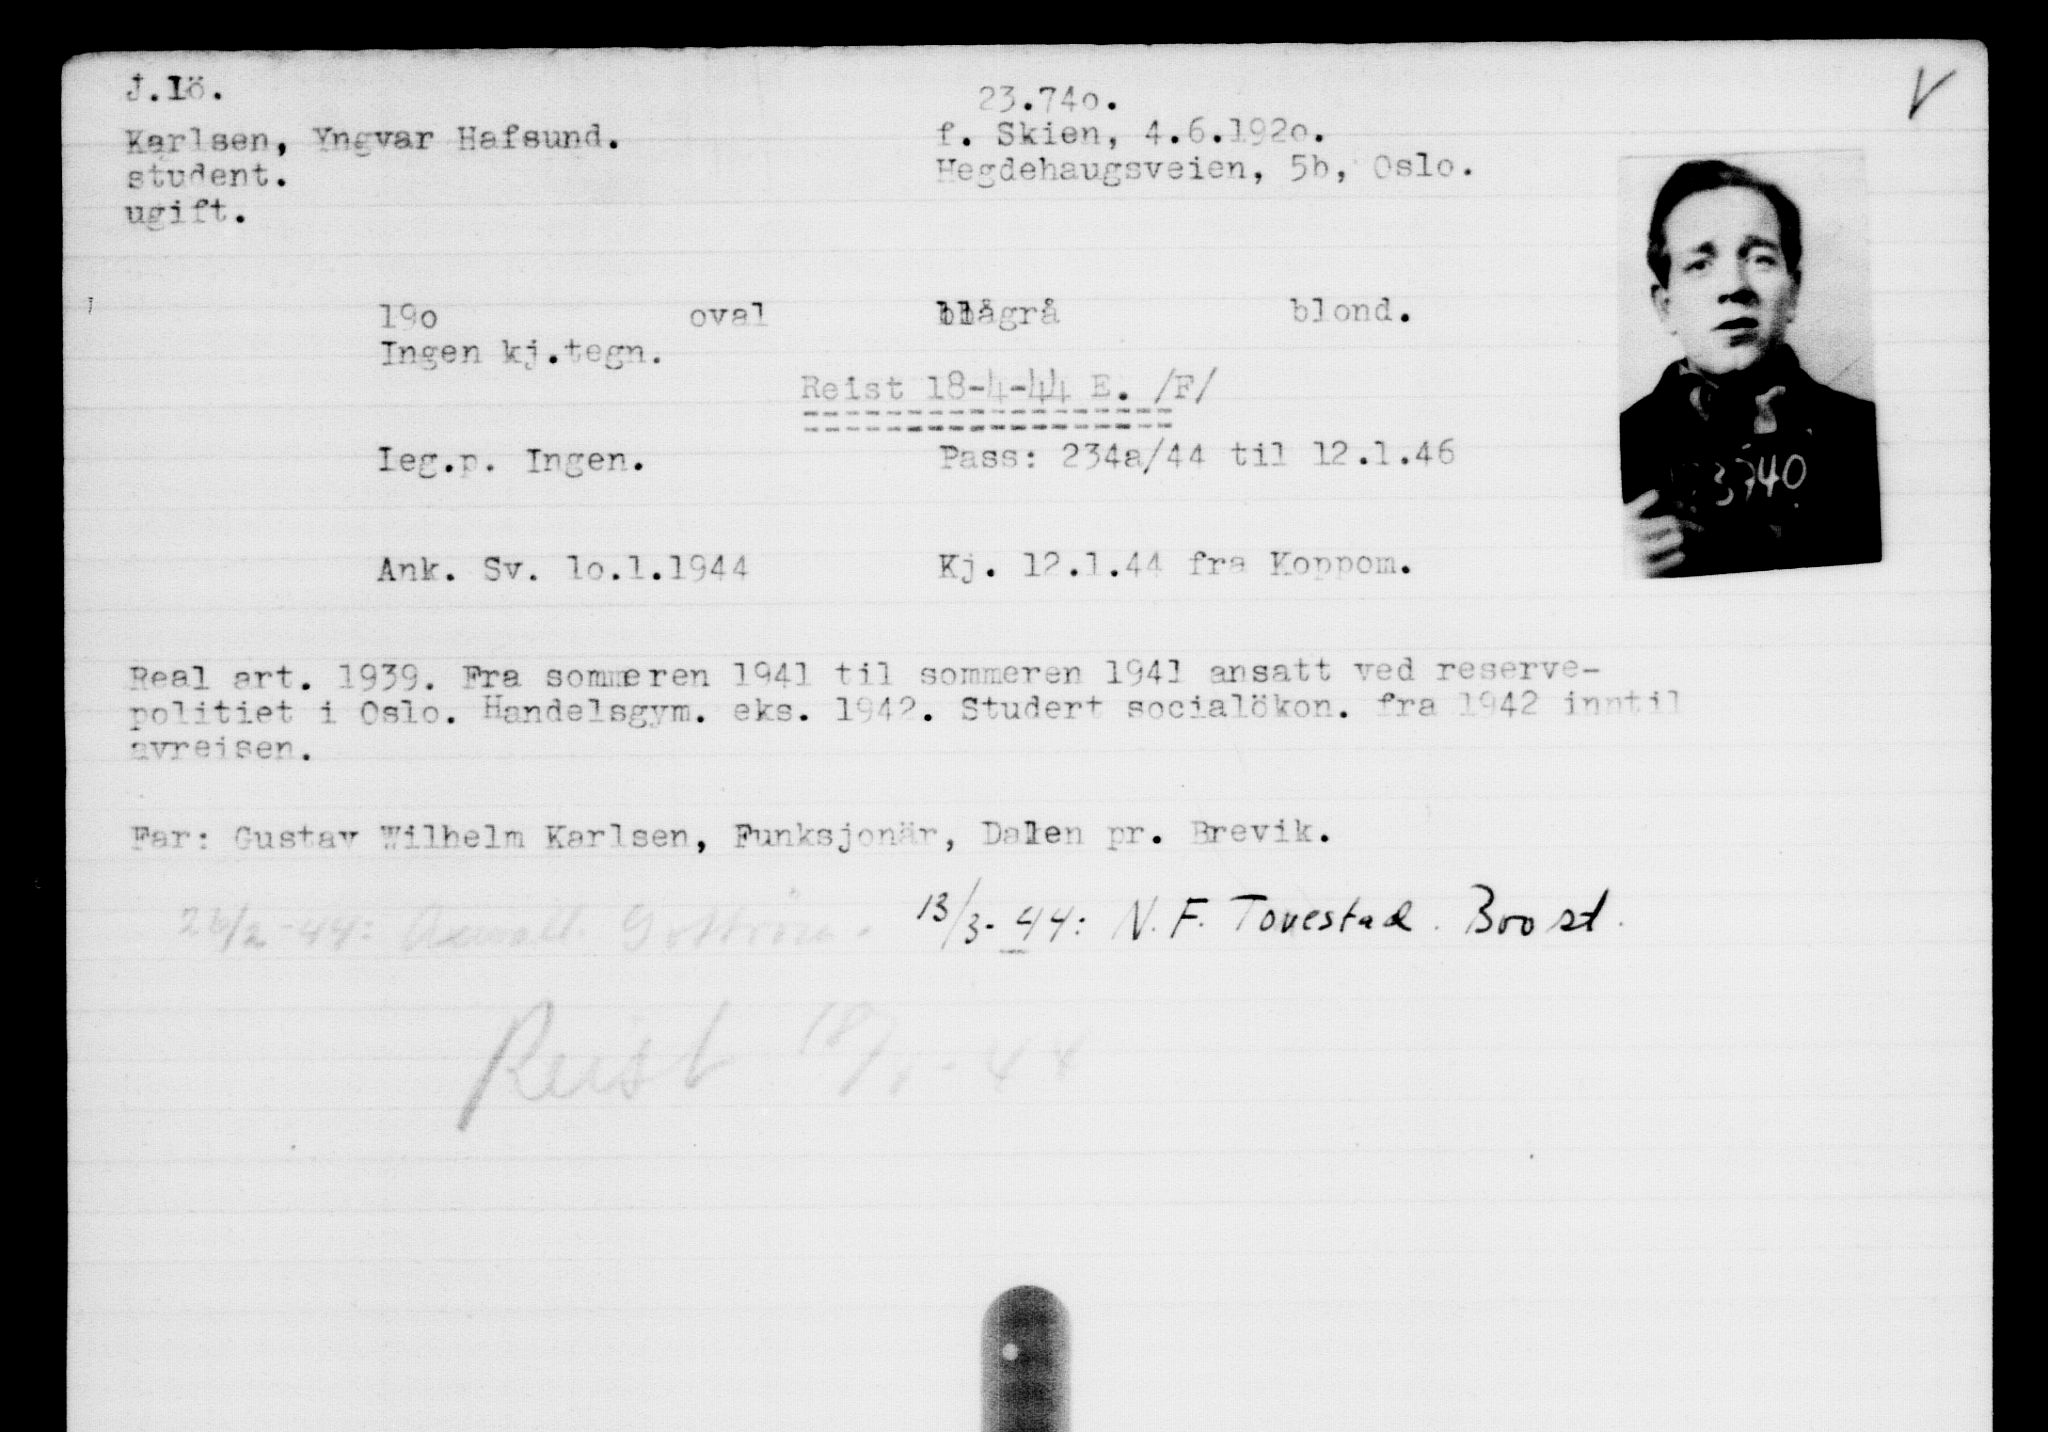 J.lö.
23.74o.
V
Karlsen, Yngvar Hafsund.
f. Skien, 4.6.192o.
student.
Hegdehaugsveien, 5b, Oslo.
ugift.
19o oval blågrå blond.
Ingen kj.tegn.
Reist 18-4-44 E. /F/
Leg.p. Ingen.
Pass: 234a/44 til 12.1.46
3740
Ank. Sv. 1o.1.1944
Kj. 12.1.44 fra Koppom.
Real art. 1939. Fra sommeren 1941 til sommeren 1941 ansatt ved reserve-
politiet i Oslo. Handelsgym. eks. 1942. Studert socialökon. fra 1942 inntil
avreisen.
Far: Gustav Wilhelm Karlsen, Funksjonär, Dalen pr. Brevik.
13/3-44: N. F. Tovestad. 
Reist 18/4-44